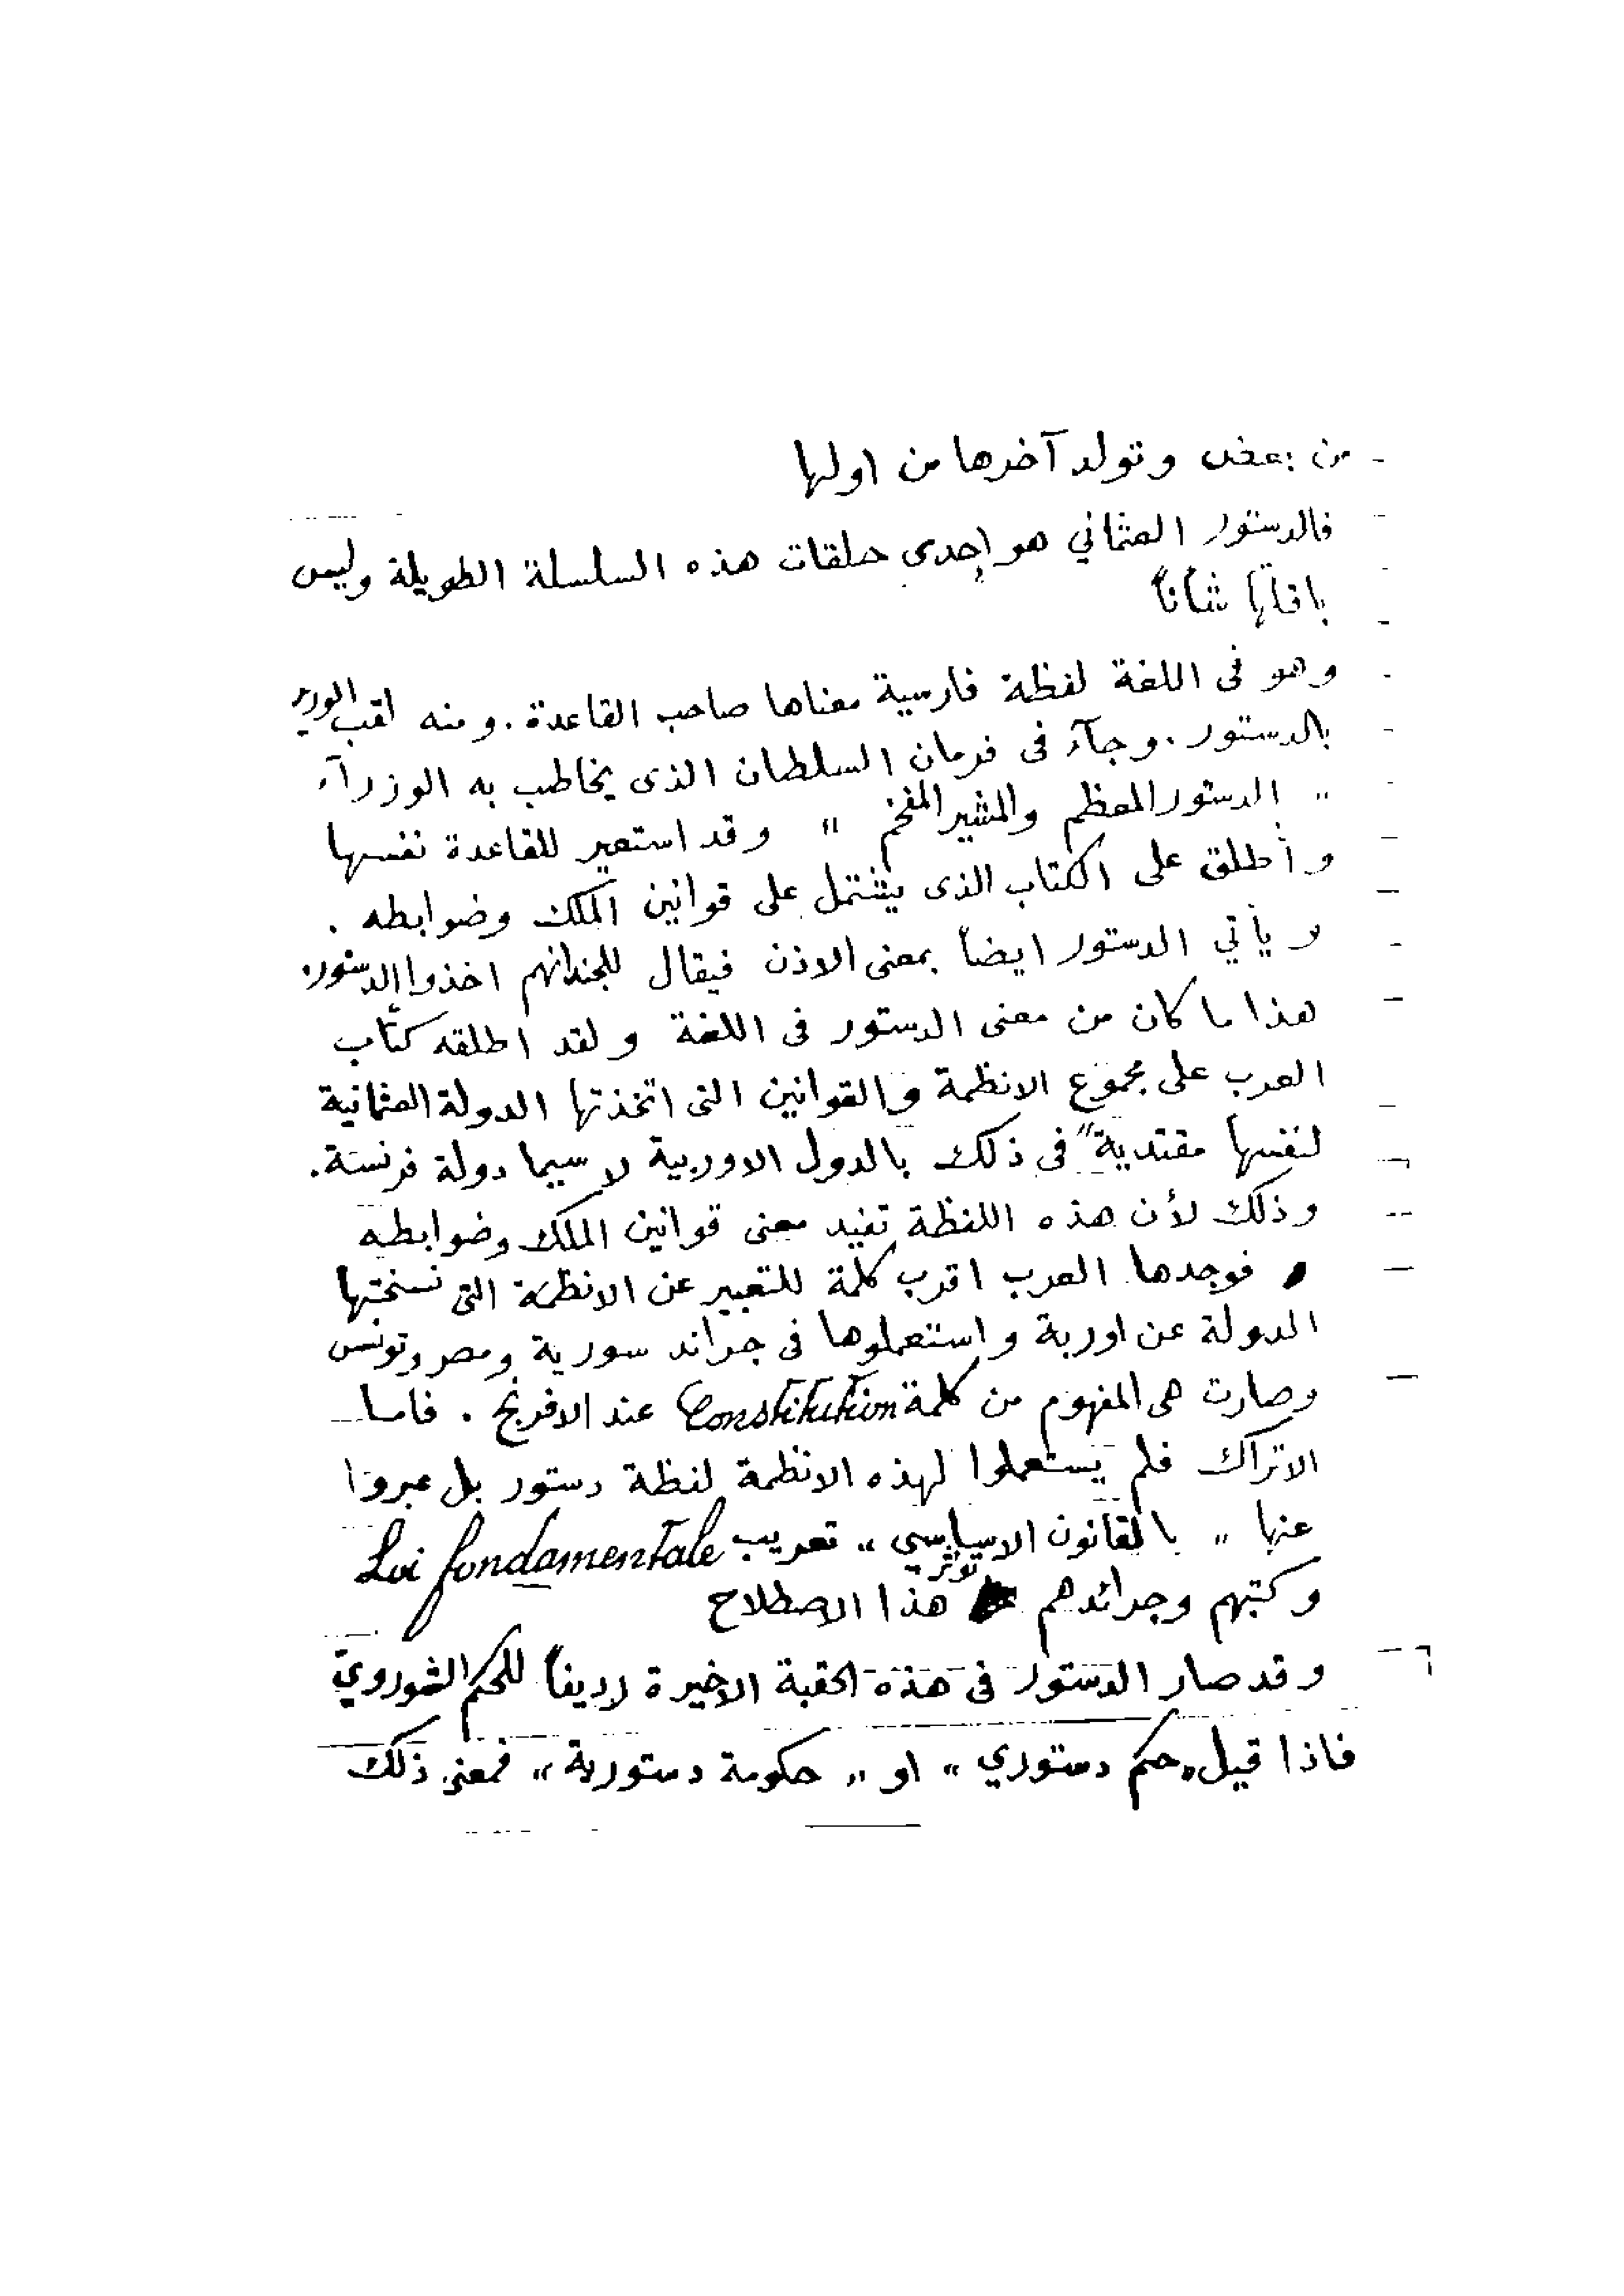 من بعض وتولد آخرها من اولها
فالدستور العثماني هو إحدى حلقات هذه السلسلة الطويلة وليس
بأقلها شأناً
وهو فى اللغة لفظة فارسية معناها صاحب القاعدة . ومنه لقب الوزير
بالدستور . وجآء فى فرمان السلطان الذى يخاطب به الوزرآء
" الدستور المعظم والمشير المفخم " وقد استعير للقاعدة نفسها
وأطلق على الكتاب الذى يشتمل على قوانين الملك وضوابطه .
ويأتي الدستور ايضاً بمعنى الاذن فيقال للجند انهم اخذوا الدستور
هذا ما كان من معنى الدستور فى اللغة ولقد اطلقه كتّاب
العرب على مجموع الانظمة والقوانين التى اتخذتها الدولة العثمانية
لنفسها مقتدية ً فى ذلك بالدول الاوربية لا سيما دولة فرنسة .
وذلك لأن هذه اللفظة تفيد معنى قوانين الملك وضوابطه
فوجدها العرب اقرب كلمة للتعبير عن الانظمة التى نسختها
الدولة عن اوربة واستعملوها فى جرائد سورية ومصر وتونس
وصارت هى المفهوم من كلمة Constitution عند الافرنج . فاما
الاتراك فلم يستعملوا لهذه الانظمة لفظة دستور بل عبروا
عنها " بالقانون الاساسي " تعريب Loi fondamentale
وكتبهم وجرائدهم تؤثر هذا الاصطلاح
وقد صار الدستور فى هذه الحقبة الاخيرة رديفاً للحكم الشوروي
فاذا قيل " حكم دستوري " او " حكومة دستورية " فمعنى ذلك